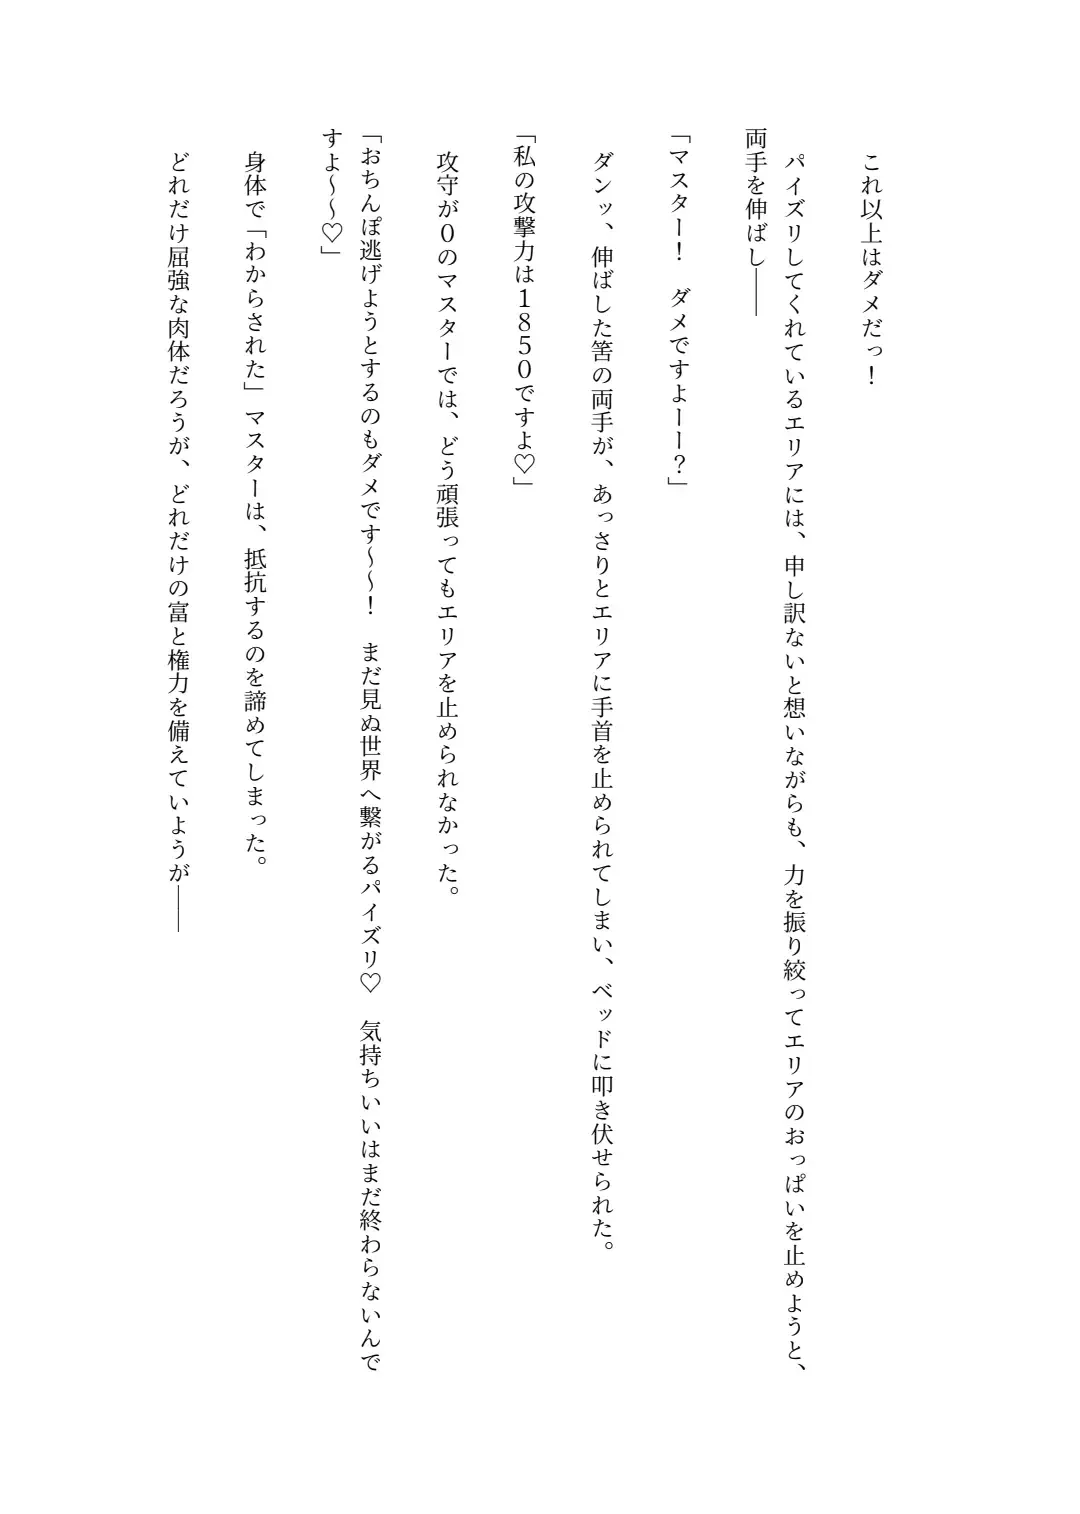 これ以上はダメだっ！
パイズリしてくれているエリアには、申し訳ないと想いながらも、力を振り絞ってエリアのおっぱいを止めようと、
両手を伸ばし――
「マスター！　ダメですよーー？」
ダンッ、伸ばした筈の両手が、あっさりとエリアに手首を止められてしまい、ベッドに叩き伏せられた。
「私の攻撃力は１８５０ですよ♡」
攻守が０のマスターでは、どう頑張ってもエリアを止められなかった。
「おちんぽ逃げようとするのもダメです～～！　まだ見ぬ世界へ繋がるパイズリ♡　気持ちいいはまだ終わらないんで
すよ～～♡」
身体で「わからされた」マスターは、抵抗するのを諦めてしまった。
どれだけ屈強な肉体だろうが、どれだけの富と権力を備えていようが――